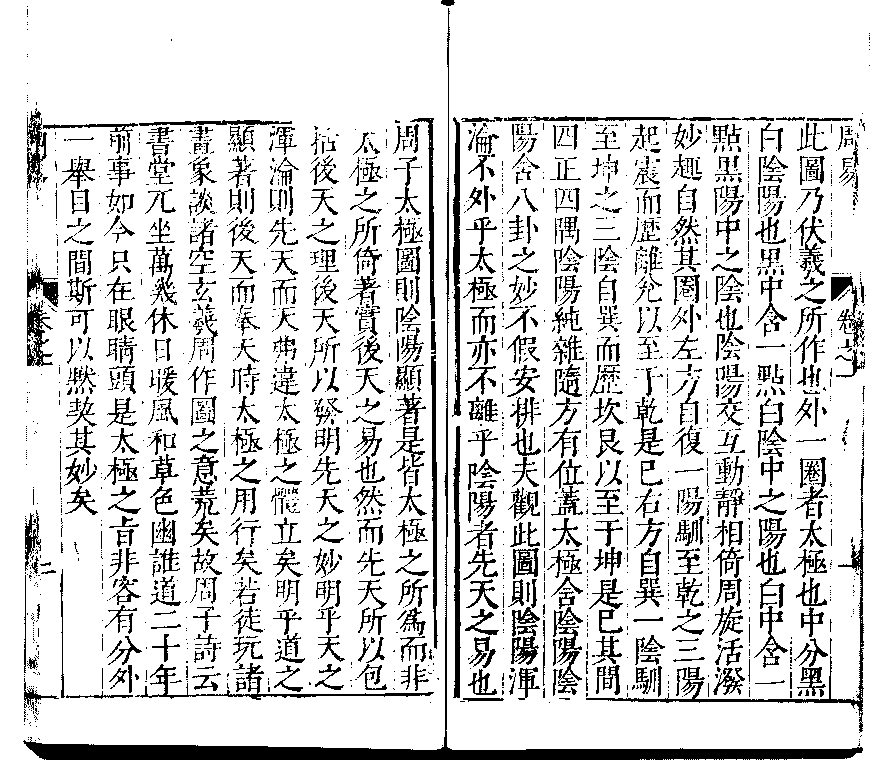 周易 卷之一 一
此圖乃伏羲之所作也外一圈者太極也中分黑
白陰陽也黑中含一點白陰中之陽也白中含一
點黑陽中之陰也陰陽交互動靜相倚周旋活潑
妙趣自然其圈外左方自復一陽馴至乾之三陽
起震而歷離兌以至于乾是已右方自巽一陰馴
至坤之三陰自巽而歷坎艮以至于坤是已其間
四正四隅陰陽純雜隨方有位蓋太極含陰陽陰
陽含八卦之妙不假安排也夫觀此圖則陰陽渾
淪不外乎太極而亦不離乎陰陽者先天之易也
周子太極圖則陰陽顯著是皆太極之所為而非
太極之所倚著實後天之易也然而先天所以包
括後天之理後天所以發明先天之妙明乎天之
渾淪則先天而天弗違太極之體立矣明乎道之
顯著則後天而奉天時太極之用行矣若徒玩諸
畫象談諸空玄羲周作圖之意荒矣故周子詩云
書堂兀坐萬幾休日暖風和草色幽誰道二十年
前事如今只在眼睛頭是太極之旨非客有分外
一舉目之間斯可以黙契其妙矣
卷之一 二